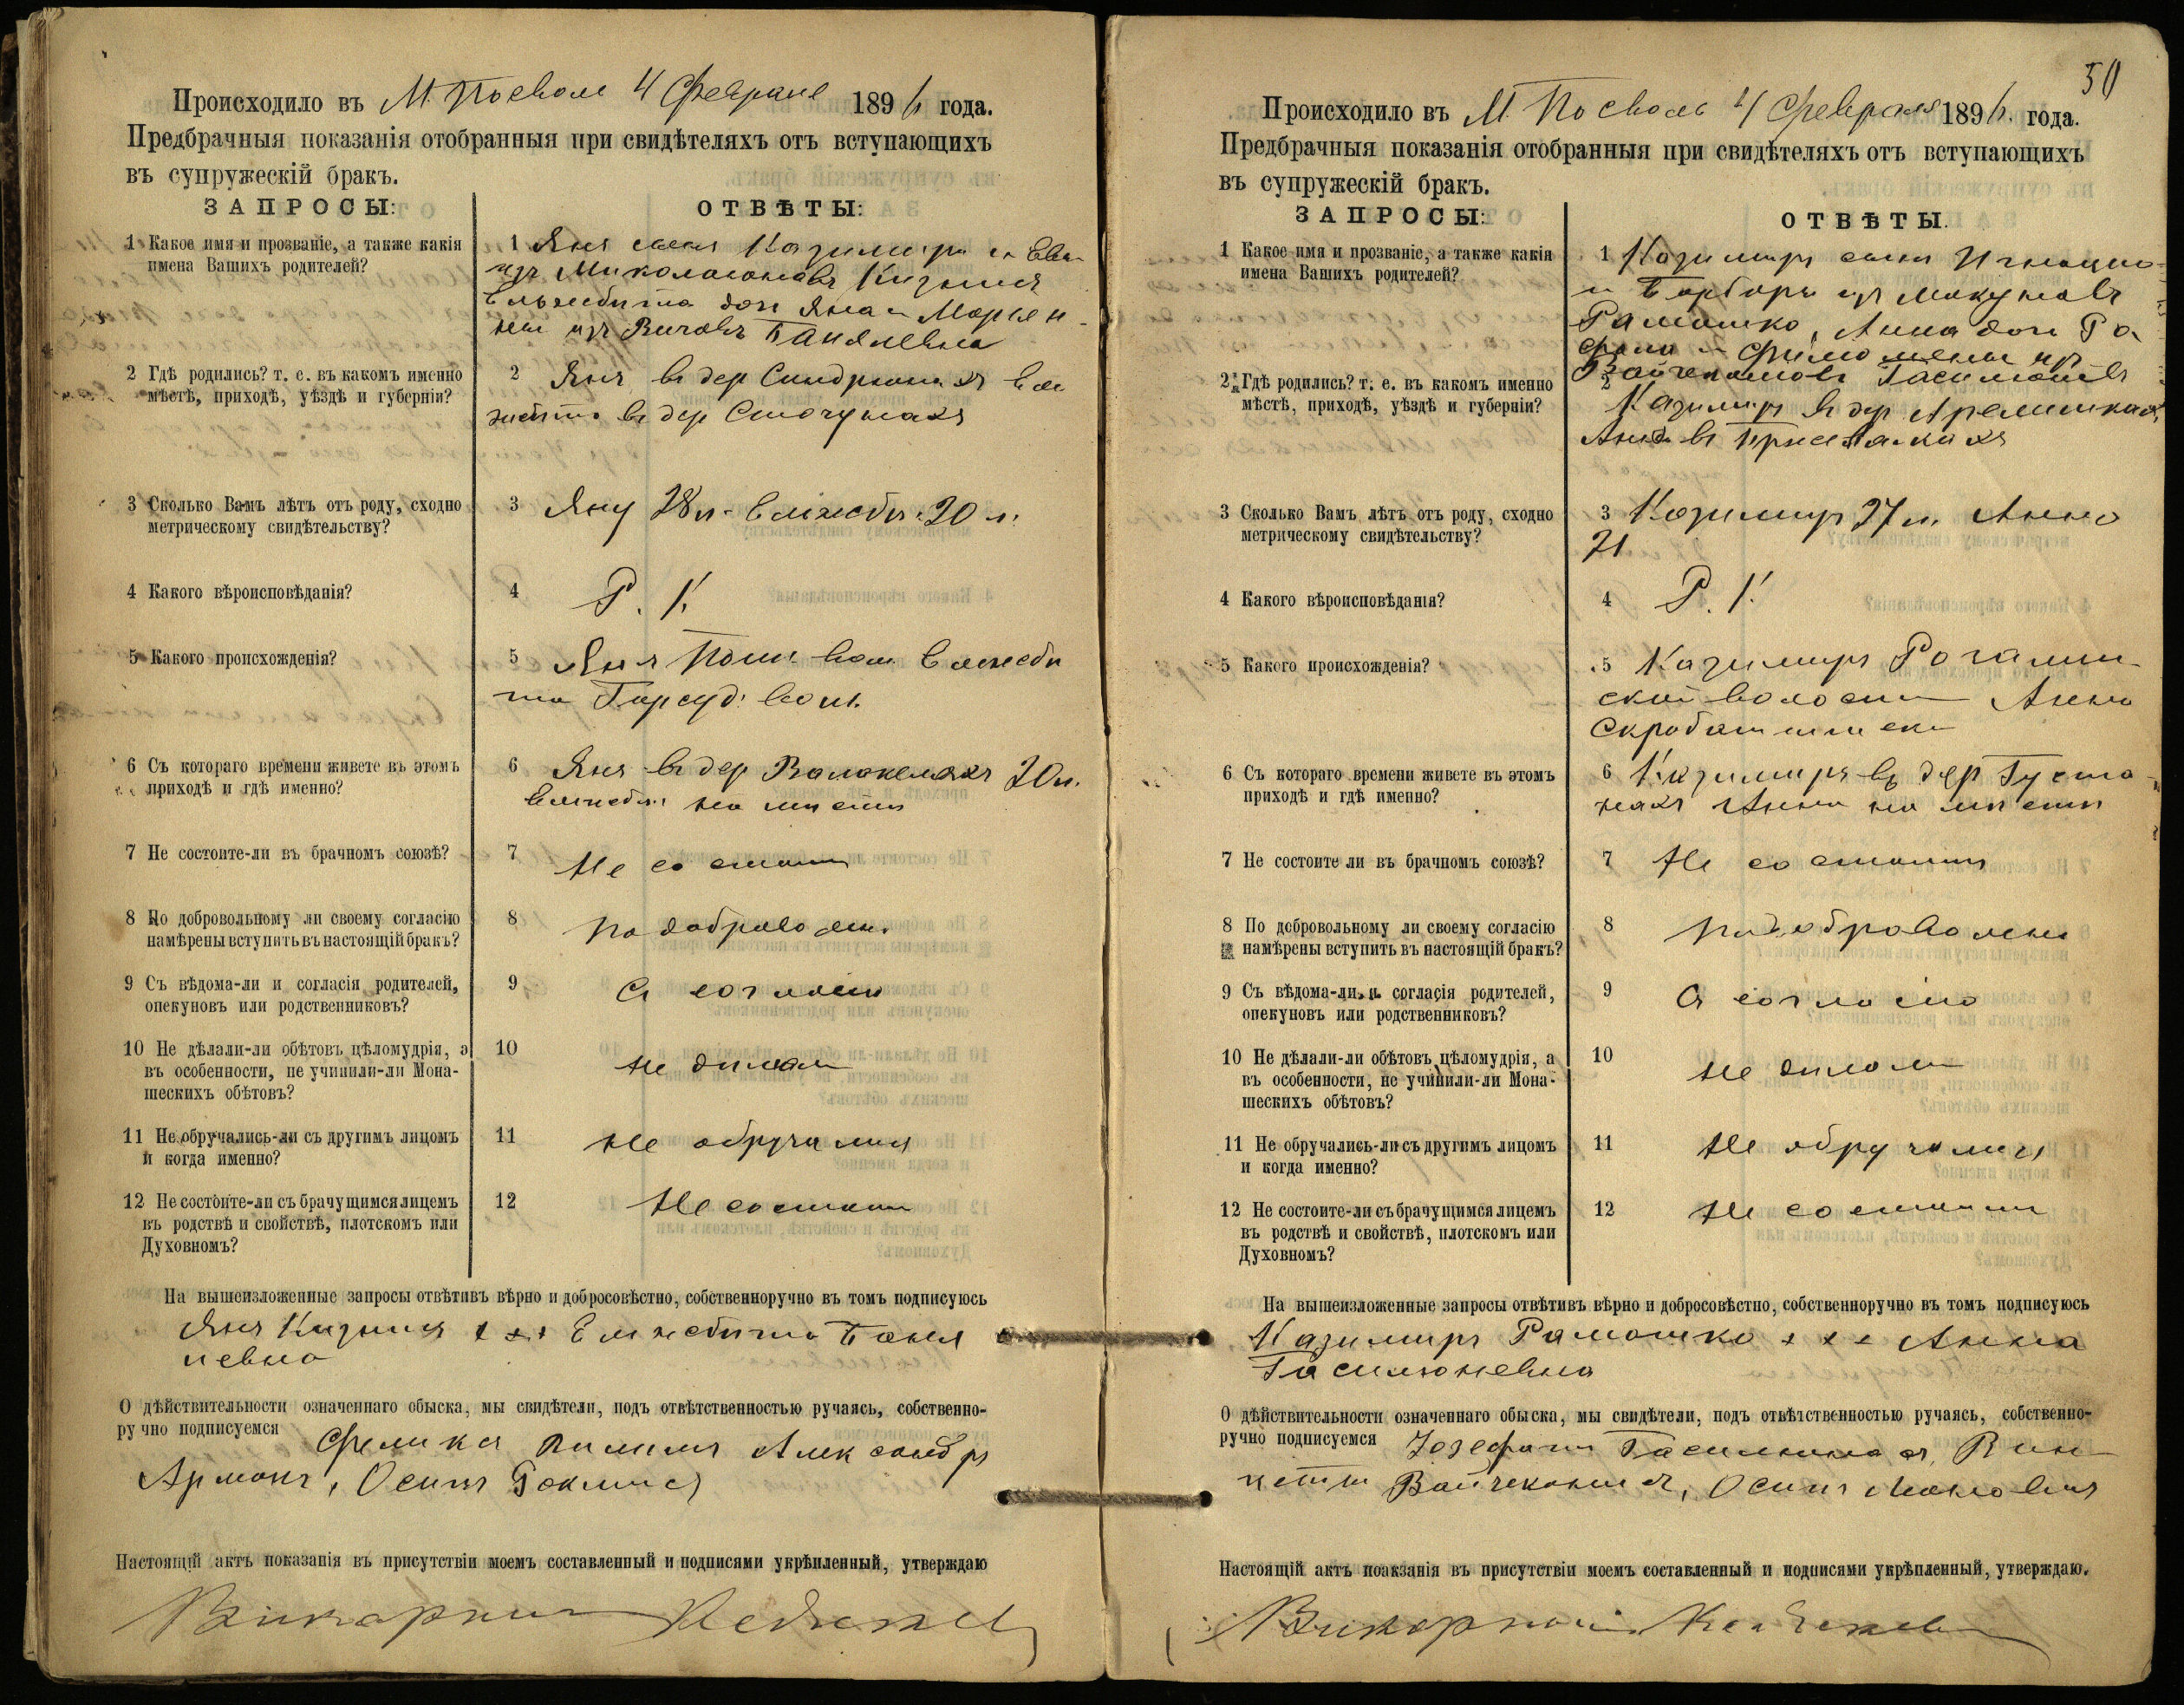 Происходило въ М. Посволь 4 Февраля 1896 года.
Предбрачныя показанія отобранныя при свидѣтеляхъ отъ вступающихъ
въ супружескій бракъ.
ЗАПРОСЫ: ОТВѢТЫ:
1 Какое имя и прозваніе, а также какія
имена Вашихъ родителей?
1 Янъ сынъ Казимира и Евы
изъ
Ельжбѣта доч Яна и Маріян-
ны изъ
2 Гдѣ родились? т. е. въ какомъ именно
мѣстѣ, приходѣ, уѣздѣ и губерніи?
2 Янъ въ дер Ель
жбѣта въ дер
3 Сколько Вамъ лѣтъ отъ роду, сходно
метрическому свидѣтельству?
3 Яну 28 л. Ельжбѣ. 20 л.
4 Какого вѣроисповѣданія?
4 Р. К.
5 Какого происхожденія?
5 Янъ вол. Ельжбѣ
та вол.
6 Съ котораго времени живете въ этомъ
приходѣ и гдѣ именно?
6 Янъ въ дер 20 л.
Ельжбѣт на мѣстѣ
7 Не состоите-ли въ брачномъ союзѣ?
7 Не состоимъ
8 По добровольному ли своему согласію
намѣрены вступить въ настоящій бракъ?
8 По доброволь.
9 Съ вѣдома-ли и согласія родителей,
опекуновъ или родственниковъ?
9 С согласія
10 Не дѣлали-ли обѣтовъ цѣломудрія, а
въ особенности, не учинили-ли Мона-
шескихъ обѣтовъ?
10 Не дѣлали
11 Не обручались-ли съ другимъ лицомъ
и когда именно?
11 Не обручались
12 Не состоите-ли съ брачущимся лицемъ
въ родствѣ и свойствѣ, плотскомъ или
Духовномъ?
12 Не состоимъ
На вышеизложенные запросы отвѣтивъ вѣрно и добросовѣстно, собственноручно въ томъ подписуюсь
Янъ × × × Ельжбѣта Баня
левна
О дѣйствительности означеннаго обыска, мы свидѣтели, подъ отвѣтственностью ручаясь, собственно-
ручно подписуемся Феликсъ Александръ
Армонъ, Осипъ
Настоящій актъ показанія въ присутствіи моемъ составленный и подписями укрѣпленный, утверждаю
Викарный
50
Происходило въ М. Посволь 4 Февраля 1896 года.
Предбрачныя показанія отобранныя при свидѣтеляхъ отъ вступающихъ
въ супружескій бракъ.
ЗАПРОСЫ: ОТВѢТЫ.
1 Какое имя и прозваніе, а также какія
имена Вашихъ родителей?
1 Казимиръ сынъ Игнація
и Барбары изъ
Рамошко, Анна доч Ра
фала и Филомены изъ
2 Гдѣ родились? т. е. въ какомъ именно
мѣстѣ, приходѣ, уѣздѣ и губерніи?
2
Казимиръ въ дер
Анна въ
3 Сколько Вамъ лѣтъ отъ роду, сходно
метрическому свидѣтельству?
3 Казимиръ 27 л. Анна
21
4 Какого вѣроисповѣданія?
4 Р. К.
5 Какого происхожденія?
5 Казимиръ
ской волости Анна
6 Съ котораго времени живете въ этомъ
приходѣ и гдѣ именно?
6 Казимиръ въ дер Густо
няхъ Анна на мѣстѣ
7 Не состоите ли въ брачномъ союзѣ?
7 Не состоимъ
8 По добровольному ли своему согласію
намѣрены вступить въ настоящій бракъ?
8 По добровольн
9 Съ вѣдома-ли и согласія родителей,
опекуновъ или родственниковъ?
9 С согласія
10 Не дѣлали-ли обѣтовъ цѣломудрія, а
въ особенности, не учинили-ли Мона-
шескихъ обѣтовъ?
10 Не дѣлали
11 Не обручались-ли съ другимъ лицомъ
и когда именно?
11 Не обручались
12 Не состоите-ли съ брачущимся лицемъ
въ родствѣ и свойствѣ, плотскомъ или
Духовномъ?
12 Не состоимъ
На вышеизложенные запросы отвѣтивъ вѣрно и добросовѣстно, собственноручно въ томъ подписуюсь
Казимиръ Рамошко × × × Анна
Гасилюневна
О дѣйствительности означеннаго обыска, мы свидѣтели, подъ отвѣтственностью ручаясь, собственно-
ручно подписуемся Іозефатъ Вин
центы Осипъ
Настоящій актъ поакзанія въ присутствіи моемъ составленный и подписями укрѣпленный, утверждаю.
Викарный